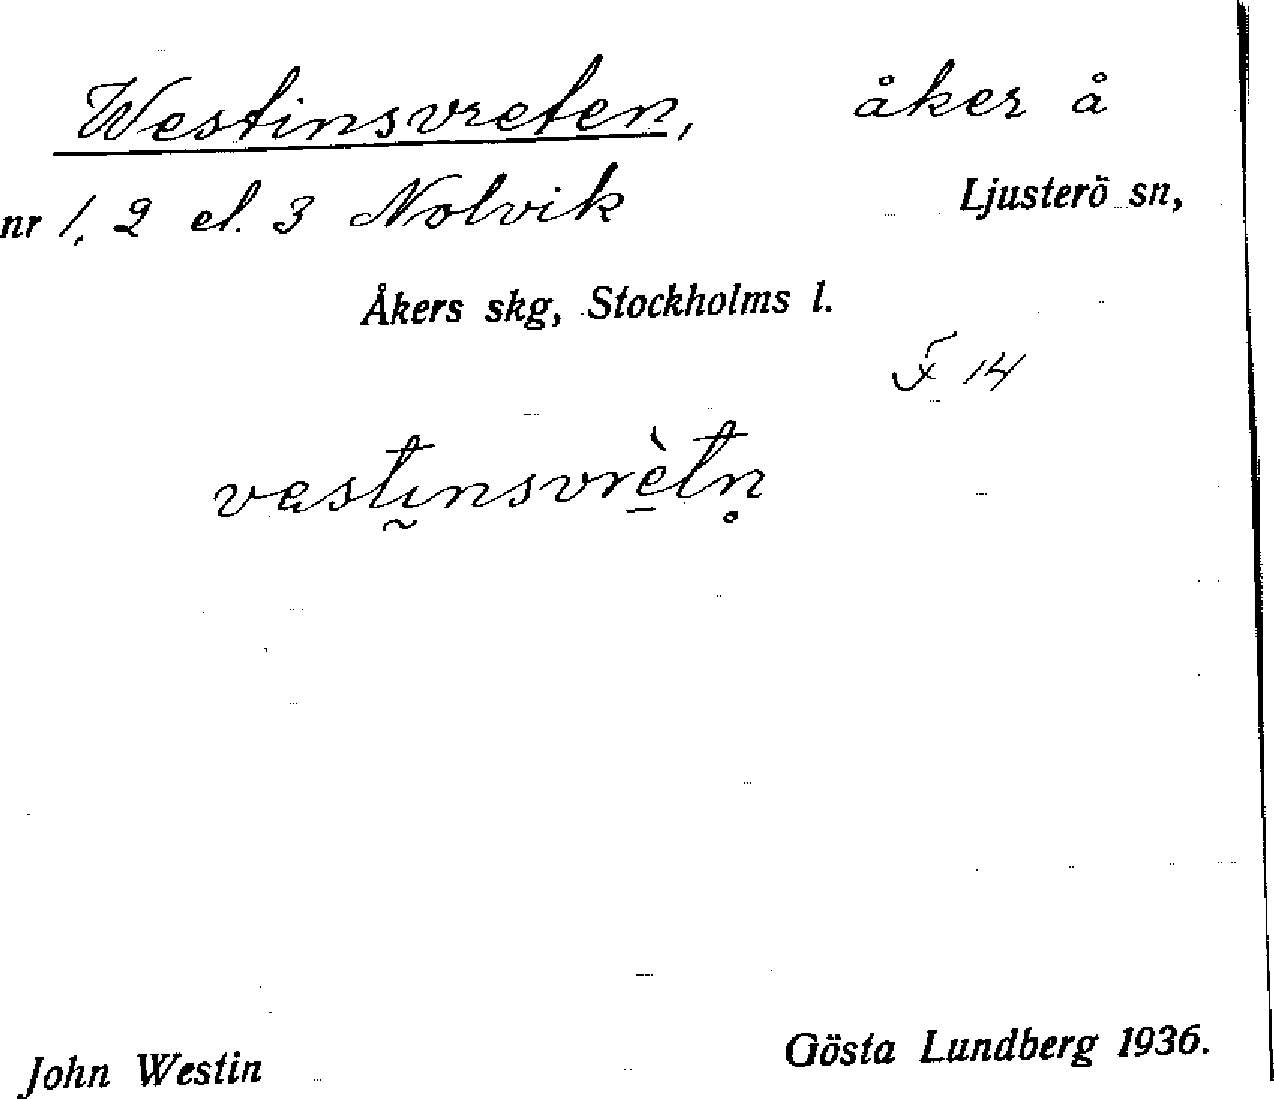 Westinsvreten, åker å
nr 1, 2 el. 3 Nolvik Ljusterö sn,
Åkers skg, Stockholms l.
F 14
vastı̰nsvrè̱tn̥
John Westin Gösta Lundberg 1936.